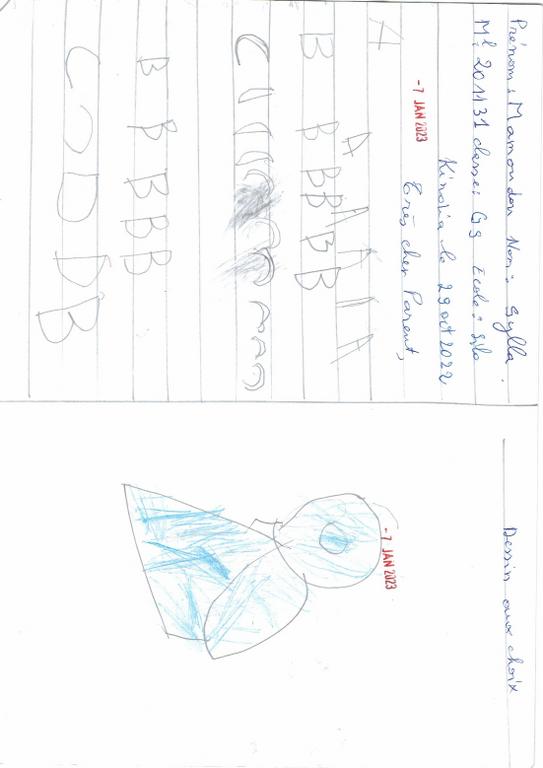 Prénom: Mamoudou Nom: Sylla
Ml: 201131 classe: GS Ecole: Silo
Kindia le 29 oct 2022
-7 JAN 2023
Très cher Parent,
A A A A A A
B B B B B B
C
B B B B B
C O D D B
Dessin aux choix
-7 JAN 2023